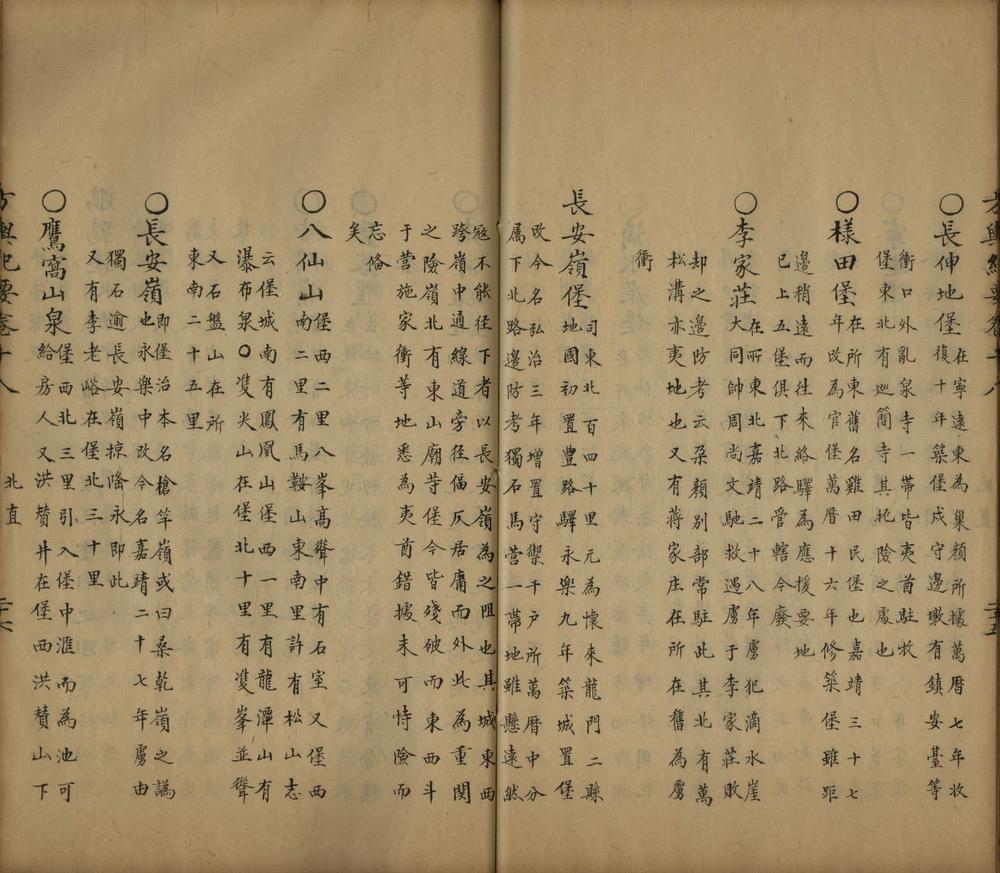 方輿紀要卷十八
○長伸地堡 在寧遠東為巢賴所據萬曆七年收
復十年築堡戍守邊墩有鎮安臺等
衝口外亂泉寺一帶皆夷酋駐牧
堡東北有巡簡寺其扼險之處也
○様田堡 在所東舊名雞田民堡也嘉靖三十七
年改為官堡萬曆十六年修築堡雖距
邊稍遠而往來絡驛為應援要地
已上五堡俱下北路管轄今廢
○李家莊 在所東北嘉靖二十八年虜犯滴水崖
大同帥周尚文馳救遇虜于李家莊敗
却之邊防考云朶顏別部常駐此其北有萬
松溝亦夷地也又有蔣家庄在所在舊為虜
衝
長安嶺堡 司東北百四十里元為懷來龍門二縣
地國初置豐路驛永樂九年築城置堡
改今名弘治三年增置守禦千戶所萬曆中分
属下北路邊防考獨石馬營一帶地雖懸遠然
寇不能徑下者以長安嶺為之阻也其城東西
跨嶺中通線道旁徑偪仄居庸而外此為重関
之險嶺北有東山廟等堡今皆殘破而東西斗
于營施家衝等地悉為夷酋錯據未可恃險而
忘俻
矣
○八仙山 堡西二里八峯高聳中有石室又堡西
南二里有馬鞍山東南里許有松山志
云堡城南有鳳凰山堡西一里有龍潭山有
瀑布泉○䨇尖山在堡北十里有䨇峯並聳
又石盤山在所
東南二十五里
○長安嶺 即堡治本名槍竿嶺或曰桑乾嶺之譌
也永樂中改今名嘉靖二十七年虜由
獨石逾長安嶺掠隆永即此
又有李老峪在堡北三十里
○鷹窩山泉 堡西北三里引入堡中滙而為池可
給房人又洪赞井在堡西洪赞山下
方輿紀要卷十八 北直 二十六